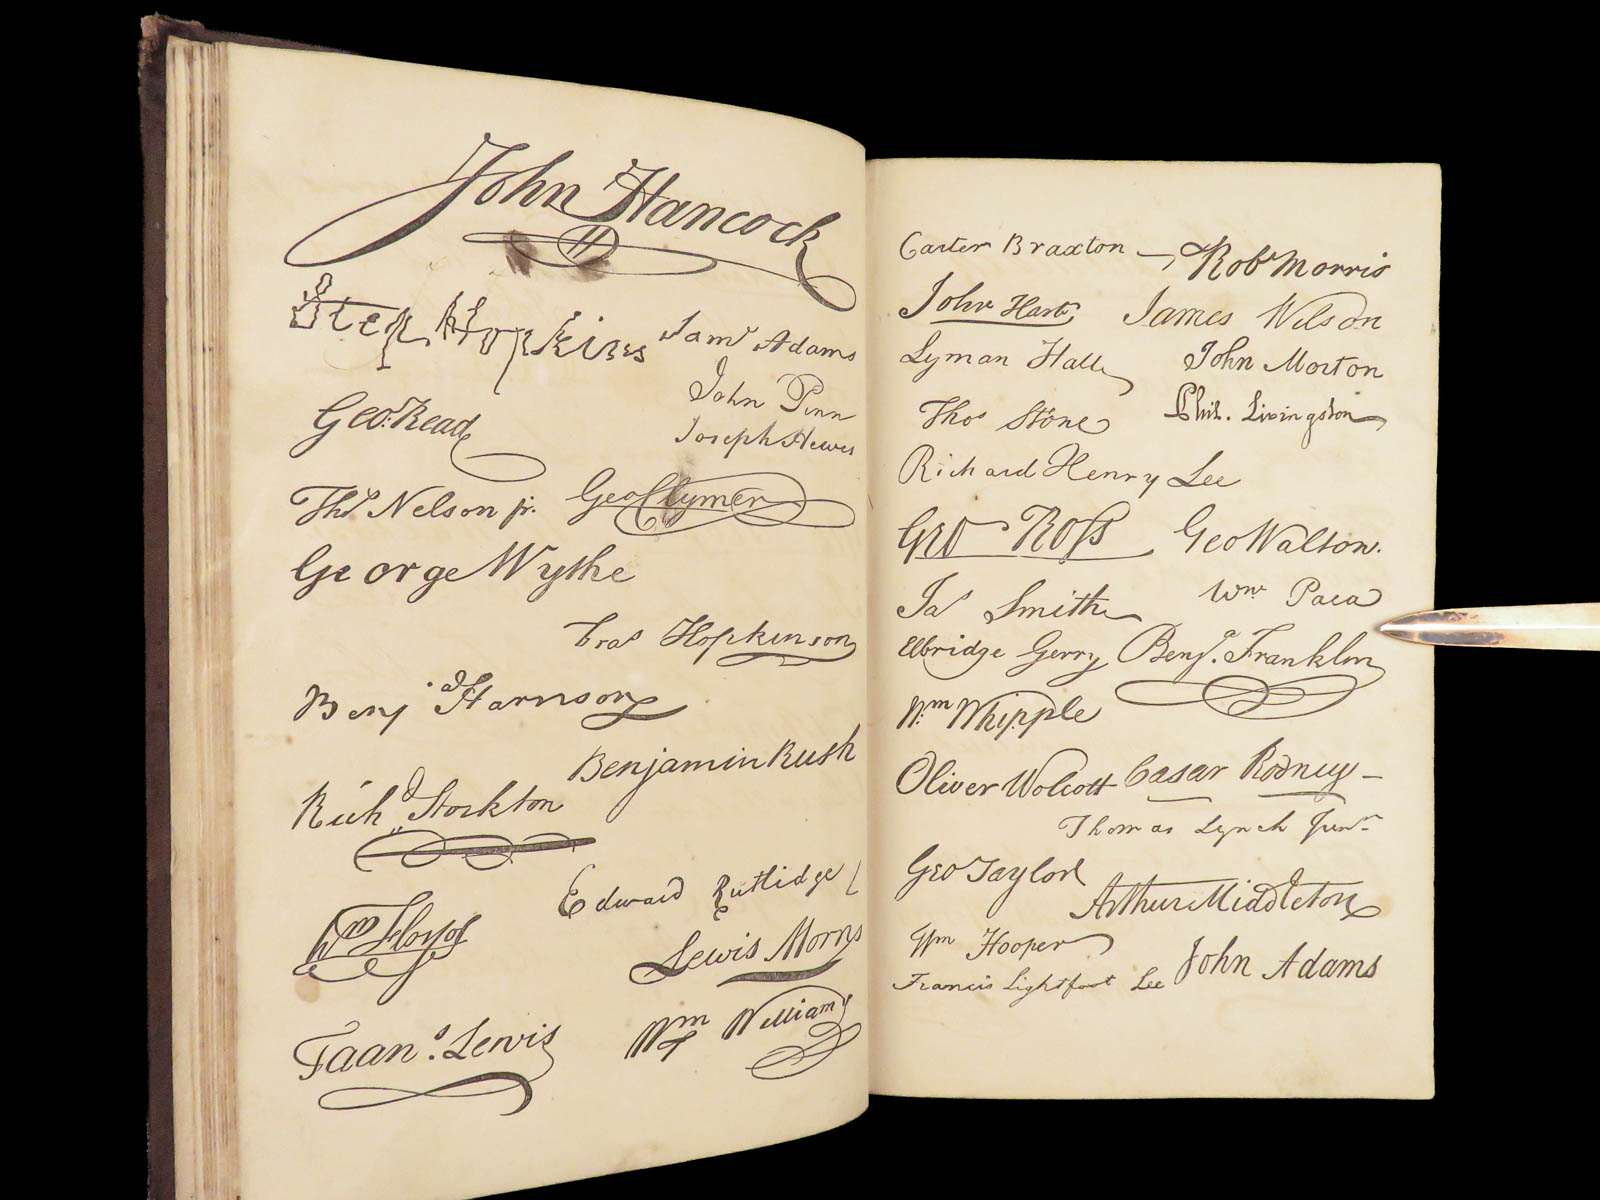 John Hancock
H
Step Hopkins Saml Adams
John Penn
Geo. Read
Joseph Hewes
Thos Nelson jr. Geo Clymer
George Wythe
Fras Hopkinson
Benj a Harrison
Benjamin Rush
Richd Stockton
Edward Rutlidge
Wm Floyd
Lewis Morris
Wm Williams
Frans. Lewis
Carter Braxton Robt Morris
John Hart James Wilson
Lyman Hall John Morton
Thos Stone Phil. Livingston
Richard Henry Lee
Geo Ross Geo Walton.
Jas Smith Wm Paca
Elbridge Gerry Benja. Franklin
Wm Whipple
Oliver Wolcott Casar Rodney
Thomas Lynch Junr
Geo Taylor
Arthur Middleton
Wm Hooper
Francis Lightfoot Lee John Adams